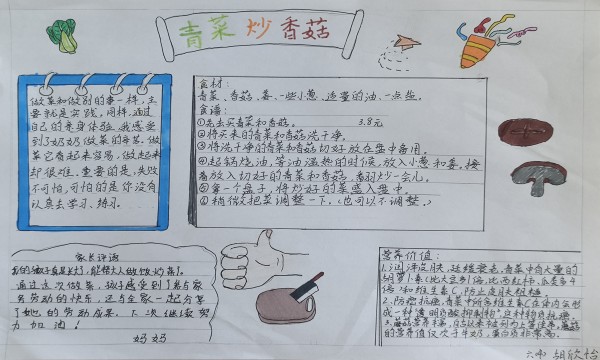 青菜炒香菇
做菜和做别的事一样，主
要就是实践。同样，通过
自己的亲身体验，我感受
到了奶奶做菜的辛苦。做
菜它看起来容易，做起来
却很难。重要的是，失败
不可怕，可怕的是你没有
认真去学习、练习。
食材：
青菜、香菇、姜、一些小葱、适量的油、一点盐。
食谱：
①先去买青菜和香菇。 3.8元
②将买来的青菜和香菇洗干净。
③将洗干净的青菜和香菇切好放在盘中备用。
④起锅烧油，等油温热的时候，放入小葱和姜。接
着放入切好的青菜和香菇，翻炒一会儿。
⑤拿一个盘子，将炒好的菜盛入盘中。
⑥稍微把菜调整一下。（也可以不调整。）
家长评语
我的孩子真是长大了，能帮大人做饭炒菜了。
通过这次做菜，孩子感受到了与家
务劳动的快乐，还与全家一起分享
了她的劳动成果，下次继续努
力加油！
妈妈
营养价值：
1.
胡萝卜素
2.防癌抗癌，青菜中所
的营养价值仅次于牛奶，蛋白质非常高。
六(4) 胡欣怡